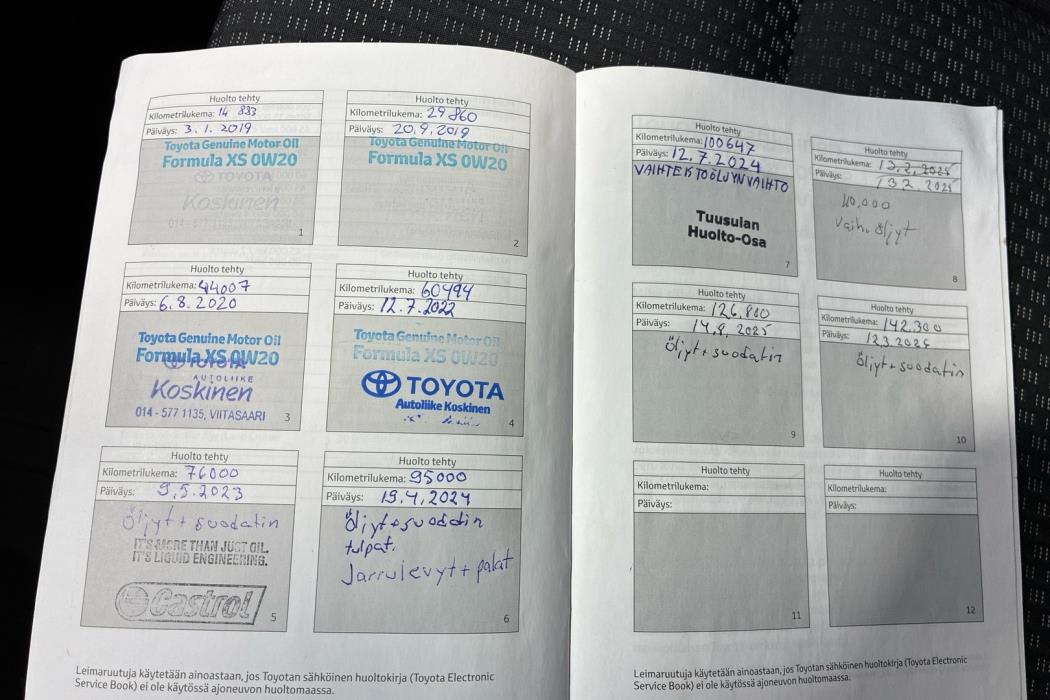 Huolto tehty
Kilometrilukema: 14 833
Päiväys: 3.1.2019
Toyota Genuine Motor Oil
Formula XS 0W20
TOYOTA
Koskinen
1
Huolto tehty
Kilometrilukema: 29860
Päiväys: 20.9.2019
Toyota Genuine Motor Oil
Formula XS 0W20
2
Huolto tehty
Kilometrilukema: 44007
Päiväys: 6.8.2020
Toyota Genuine Motor Oil
Formula XS 0W20
TOYOTA
AUTOLIIKE
Koskinen
014 - 577 1135, VIITASAARI
3
Huolto tehty
Kilometrilukema: 60494
Päiväys: 12.7.2022
Toyota Genuine Motor Oil
Formula XS 0W20
TOYOTA
Autoliike Koskinen
4
Huolto tehty
Kilometrilukema: 76000
Päiväys: 9.5.2023
Öljyt + suodatin
IT'S MORE THAN JUST OIL.
IT'S LIQUID ENGINEERING.
Castrol
5
Huolto tehty
Kilometrilukema: 95000
Päiväys: 15.4.2024
Öljyt+suodatin
tulpat.
Jarrulevyt + palat
6
Leimaruutuja käytetään ainoastaan, jos Toyotan sähköinen huoltokirja (Toyota Electronic
Service Book) ei ole käytössä ajoneuvon huoltomaassa.
Huolto tehty
Kilometrilukema: 100647
Päiväys: 12.7.2024
VAIHTEISTOÖLJYNVAIHTO
Tuusulan
Huolto-Osa
7
Huolto tehty
Kilometrilukema: 13.2.2025
Päiväys: 13.2.2025
vaih. öljyt
8
Huolto tehty
Kilometrilukema: 126.800
Päiväys: 14.8.2025
Öljyt+suodatin
9
Huolto tehty
Kilometrilukema: 142.300
Päiväys:
Öljyt+suodatin
10
Huolto tehty
Kilometrilukema:
Päiväys:
11
Huolto tehty
Kilometrilukema:
Päiväys:
12
Leimaruutuja käytetään ainoastaan, jos Toyotan sähköinen huoltokirja (Toyota Electronic
Service Book) ei ole käytössä ajoneuvon huoltomaassa.